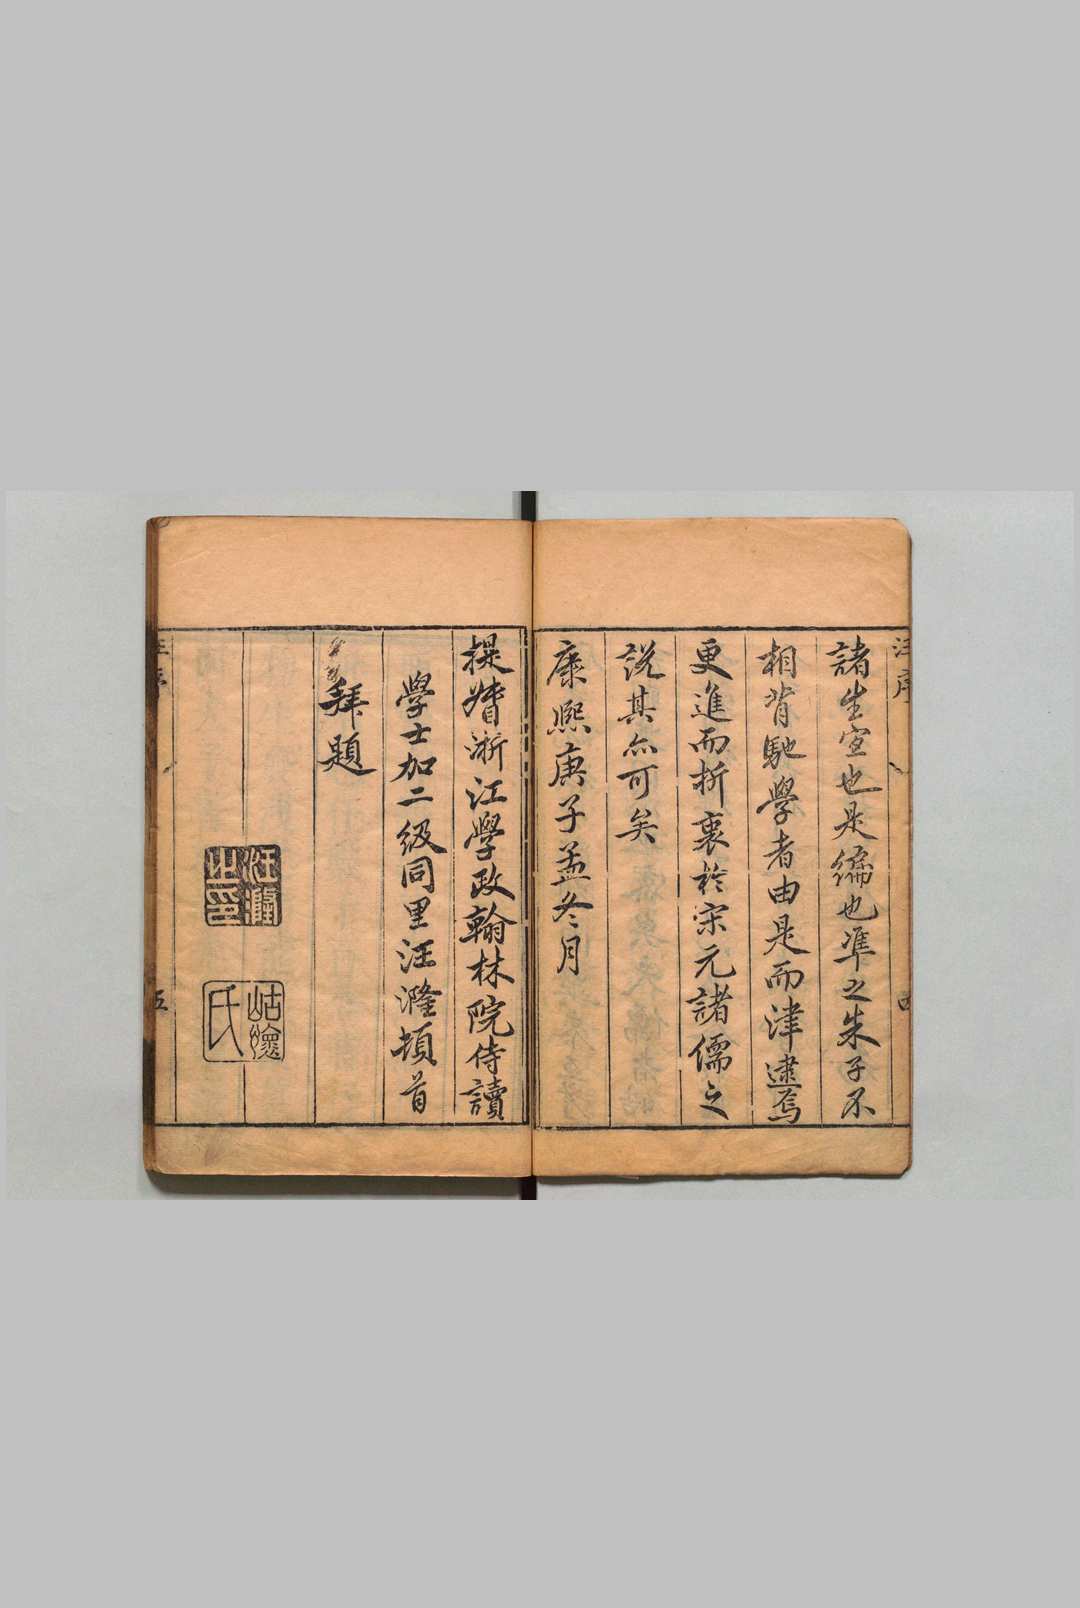 諸生宣也是編也準之朱子不
相背馳學者由是而津逮焉
更進而折衷於宋元諸儒之
說其亦可矣
康熙庚子孟冬月
提督浙江學政翰林院侍讀
學士加二級同里汪漋頓首
拜題
汪漋之印
氏
汪序
四
五